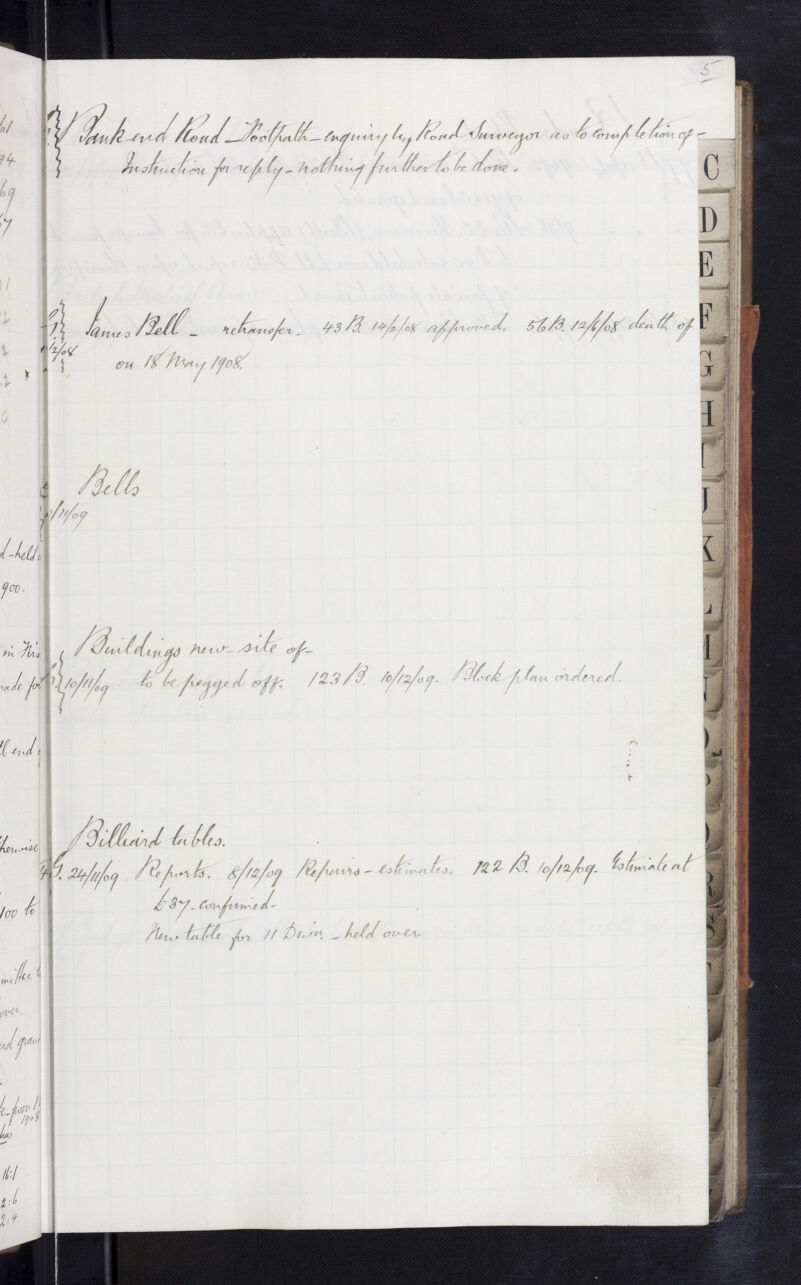 5
Bank end Road - Footpath - enquiry by Road Surveyor as to completion of -
Instruction for reply - nothing further to be done.
James Bell - retransfer - 43 B. 14/2/08 approved. 56 B. 12/6/08 death of
/2/08
on 18 May 1908.
Bells
/11/09
Buildings new - site of -
10/11/09 to be pegged off. 123 B. 10/12/09. Block plan ordered.
Billiard tables.
G. 24/11/09 Reports. 8/12/09 Repairs - estimates. 122 B. 10/12/09. Estimate at
£37 - confirmed -
New table for 11 - held over
C
D
E
F
G
H
I
J
K
L
M
N
O
P
Q
R
S
T
d - held
900.
in
made for
ll end
therwise
100 to
over.
1908
has
16:1
2:6
2:4